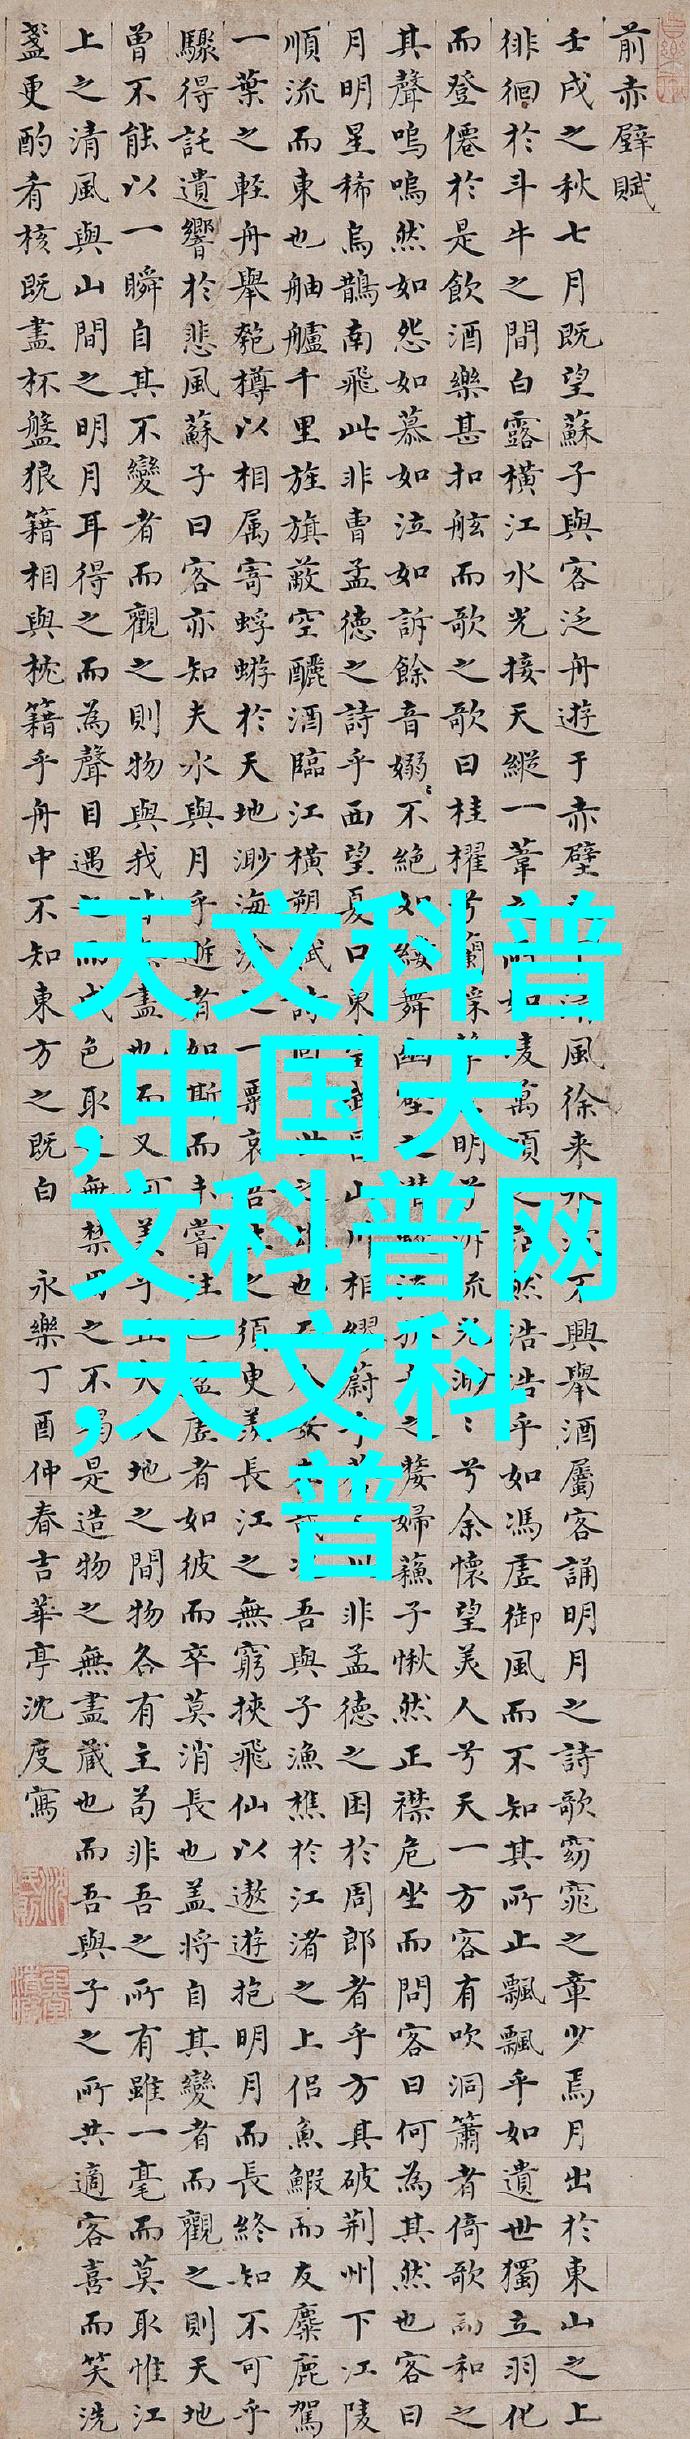 前赤壁賦
壬戌之秋七月既望蘇子與客泛舟遊于赤壁風徐来不興舉酒屬客誦明月之詩歌窈窕之章少焉月出於東山之上
徘徊於斗牛之間白露横江水光接天縱一葦如凌萬頃之然浩浩乎如馮虛御風而不知其所止飄飄乎如遺世獨立羽化
而登僊於是飲酒樂甚扣舷而歌之歌曰桂櫂兮蘭明兮泝流光渺〻兮余懷望美人兮天一方客有吹洞簫者倚歌而和之
其聲嗚嗚然如怨如慕如泣如訴餘音嫋〻不絶如縷舞幽壑之之嫠婦蘇子愀然正襟危坐而問客曰何為其然也客曰
月明星稀烏鵲南飛此非曹孟德之詩乎西望夏口東山川相繆乎非孟德之困於周郎者乎方其破荆州下江陵
順流而東也舳艫千里旌旗蔽空釃酒臨江横槊賦詩世之也吾與子漁樵於江渚之上侶魚鰕而友麋鹿駕
一葉之輕舟舉匏樽以相属寄蜉蝣於天地渺海一哀吾之須臾羨長江之無窮挾飛仙以遨遊抱明月而長終知不可乎
驟得託遺響於悲風蘇子曰客亦知夫水與月乎逝者如斯而未嘗往盈虛者如彼而卒莫消長也盖將自其變者而觀之則天地
曾不能以一瞬自其不變者而觀之則物與我盡也而又何羨乎地之間物各有主苟非吾之所有雖一毫而莫取惟江
上之清風與山間之明月耳得之而為聲目遇而成色取無禁用之不竭是造物之無盡藏也而吾與子之所共適客喜而笑洗
盞更酌肴核既盡杯盤狼籍相與枕籍乎舟中不知東方之既白 永樂丁酉仲春吉華亭沈度寫
天文科普
,中国天
文科普网
,天文科
普